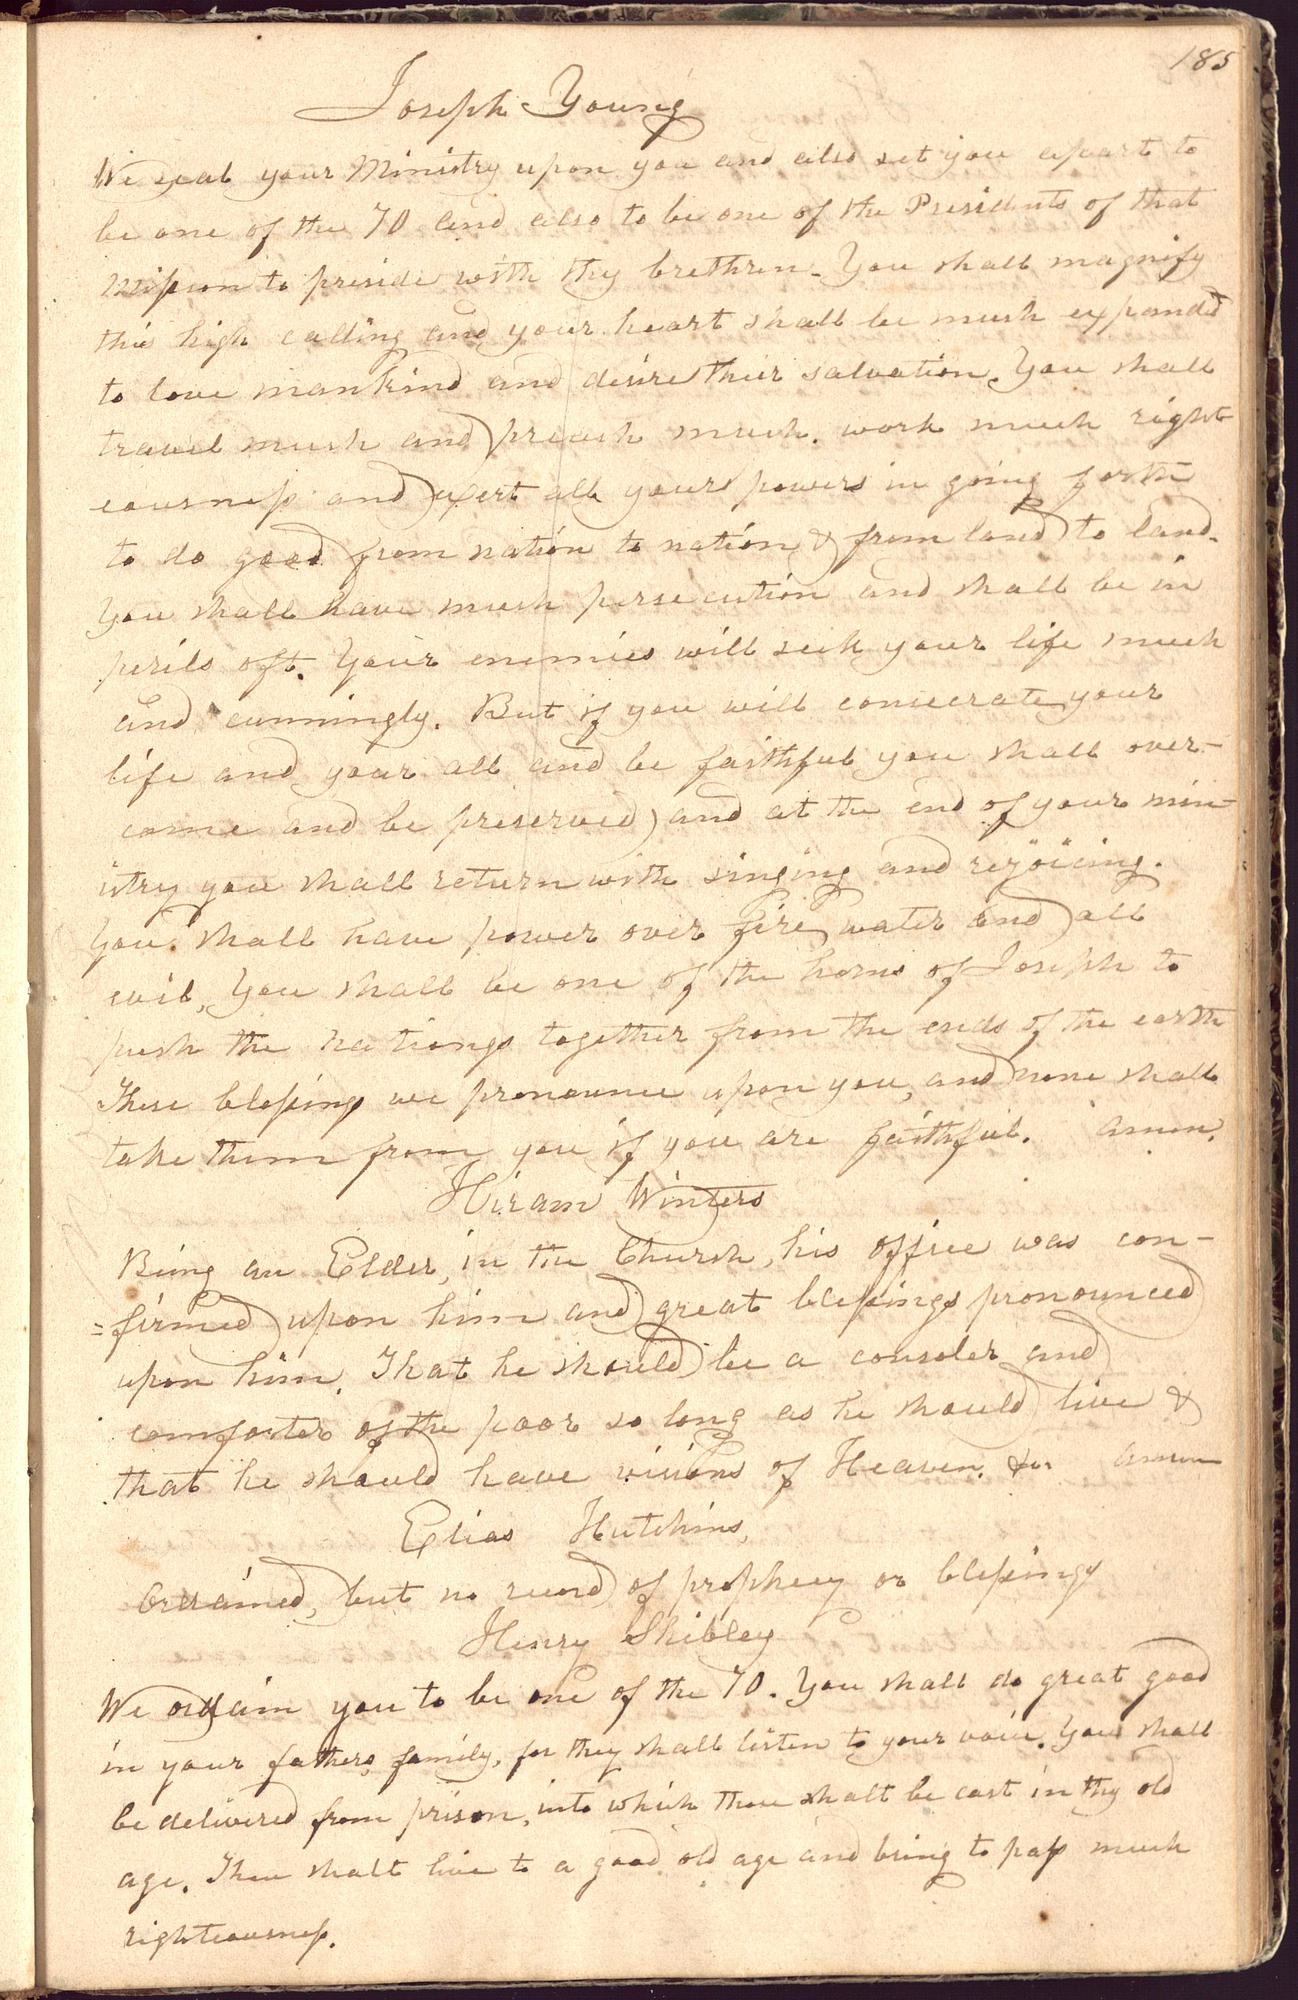 185
Joseph Young
We seal your Ministry upon you and also set you apart to
be one of the 70 and also to be one of the Presidents of that
mission to preside with thy brethren. You shall magnify
this high calling and your heart shall be much expanded
to love mankind and desire their salvation. You shall
travel much and preach much. work much right
eousness and exert all your powers in going forth
to do good from nation to nation & from land to land.
You shall have much persecution and shall be in
perils oft. Your enemies will seek your life much
and cunningly. But if you will consecrate your
life and your all and be faithful you shall over-
come and be preserved and at the end of your min-
istry you shall return with singing and rejoicing.
You shall have power over fire, water and all
evil, You shall be one of the horns of Joseph to
push the nations together from the ends of the earth
These blessings we pronounce upon you, and none shall
take them from you if you are faithful. Amen.
Hiram Winters
Being an Elder, in the Church, his office was con-
=firmed upon him and great blessings pronounced
upon him. That he should be a consoler and
comforter of the poor so long as he should live &
that he should have visions of Heaven. &c. amen
Elias Hutchins,
Ordained, but no record of prophecy or blessings
Henry Shibley
We ordain you to be one of the 70. You shall do great good
in your fathers family, for they shall listen to your voice. You shall
be delivered from prison, into which thou shalt be cast in thy old
age. Thou shalt live to a good old age and bring to pass much
righteousness.